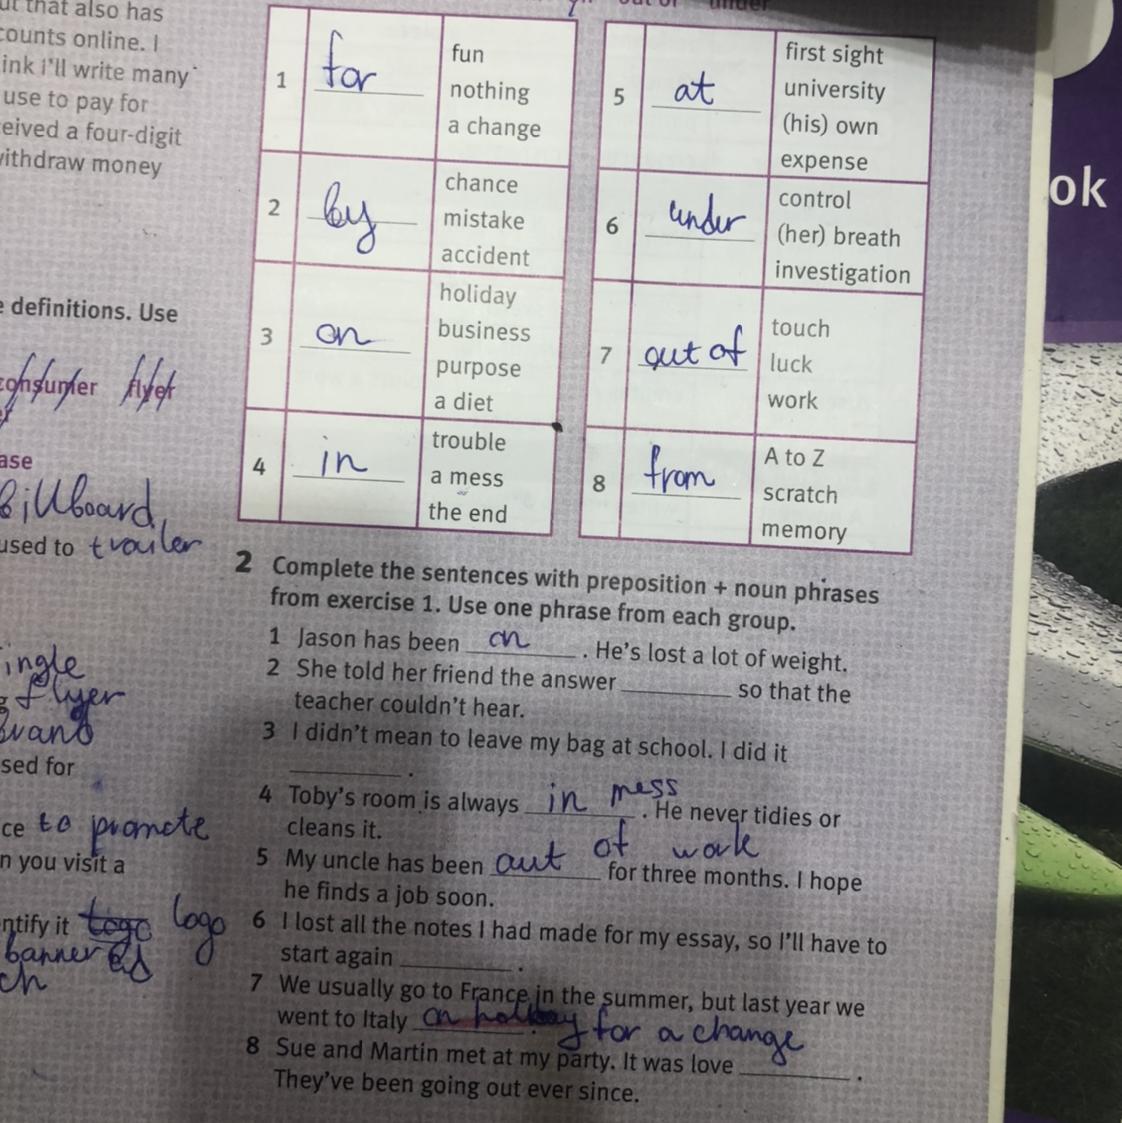 that also has
counts online. I
ink i'll write many
use to pay for
eived a four-digit
withdraw money
e definitions. Use
consumer flyer
ase
Billboard
used to trailer
ingle
flyer
brand
sed for
ce to promote
n you visit a
ntify it logo logo
banner ad
ch
out of under
1 for fun
nothing
a change
2 by chance
mistake
accident
3 on holiday
business
purpose
a diet
4 in trouble
a mess
the end
5 at first sight
university
(his) own
expense
6 under control
(her) breath
investigation
7 out of touch
luck
work
8 from A to Z
scratch
memory
2 Complete the sentences with preposition + noun phrases
from exercise 1. Use one phrase from each group.
1 Jason has been on . He's lost a lot of weight.
2 She told her friend the answer so that the
teacher couldn't hear.
3 I didn't mean to leave my bag at school. I did it
.
4 Toby's room is always in mess . He never tidies or
cleans it.
5 My uncle has been out of work for three months. I hope
he finds a job soon.
6 I lost all the notes I had made for my essay, so I'll have to
start again .
7 We usually go to France in the summer, but last year we
went to Italy on holiday . for a change
8 Sue and Martin met at my party. It was love .
They've been going out ever since.
ok